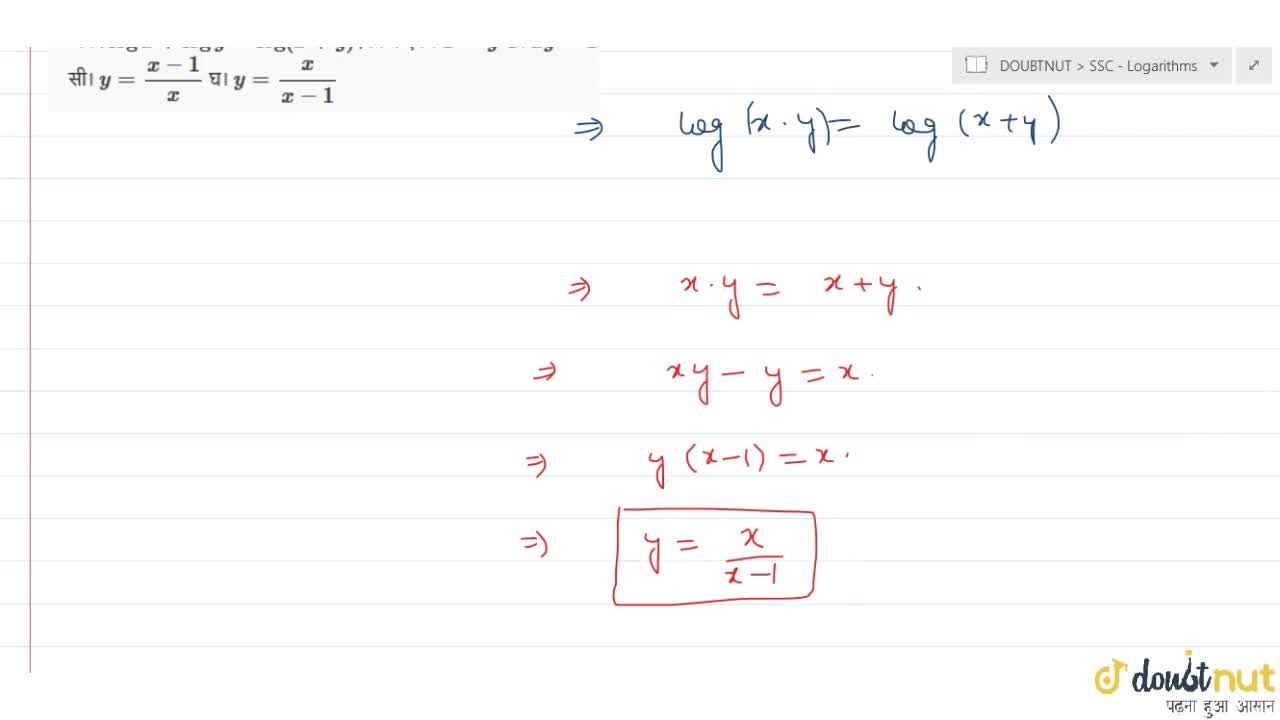 सी। y = \frac{x-1}{x} घ। y = \frac{x}{x-1}
DOUBTNUT > SSC - Logarithms
⇒ log (x · y) = log (x + y)
⇒ x · y = x + y .
⇒ xy - y = x .
⇒ y (x-1) = x .
⇒ y = \frac{x}{x-1}
doubtnut
पढ़ना हुआ आसान